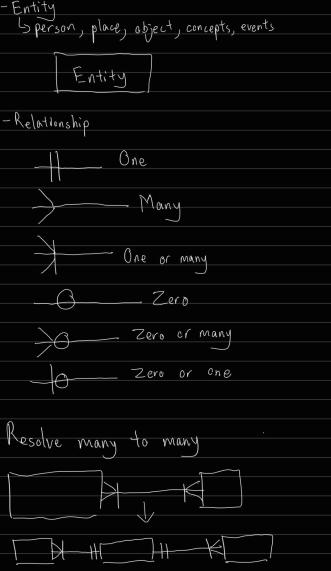 - Entity
↳ person, place, object, concepts, events
Entity
- Relationship
One
Many
One or many
Zero
Zero or many
Zero or one
Resolve many to many